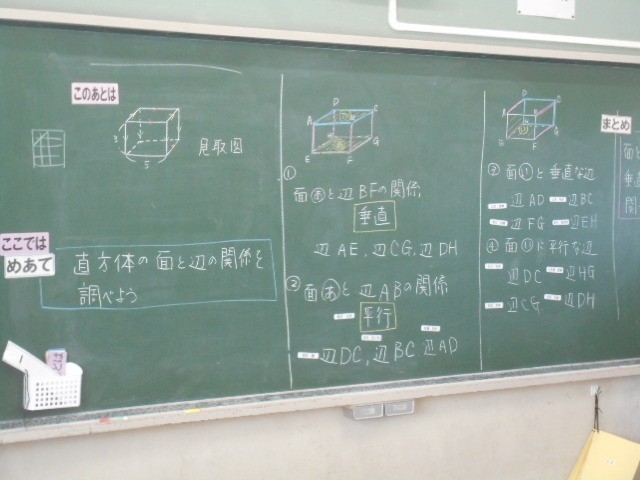 このあとは
3
5
見取図
ここでは
めあて
直方体の面と辺の関係を
調べよう
D C
A
G
E F
①
面あと辺BFの関係
垂直
辺AE, 辺CG, 辺DH
②面あと辺ABの関係
平行
辺DC, 辺BC 辺AD
D C
A
G
F
③面いと垂直な辺
辺AD 辺BC
辺FG 辺EH
④面いに平行な辺
辺DC 辺HG
辺CG 辺DH
まとめ
面と
垂直
関